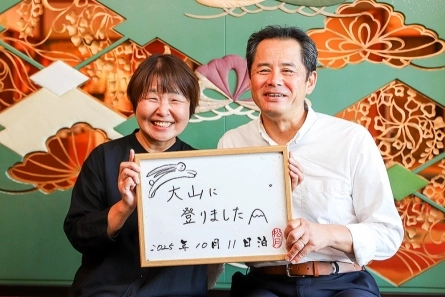 大山に
登りました
2025年10月11日泊